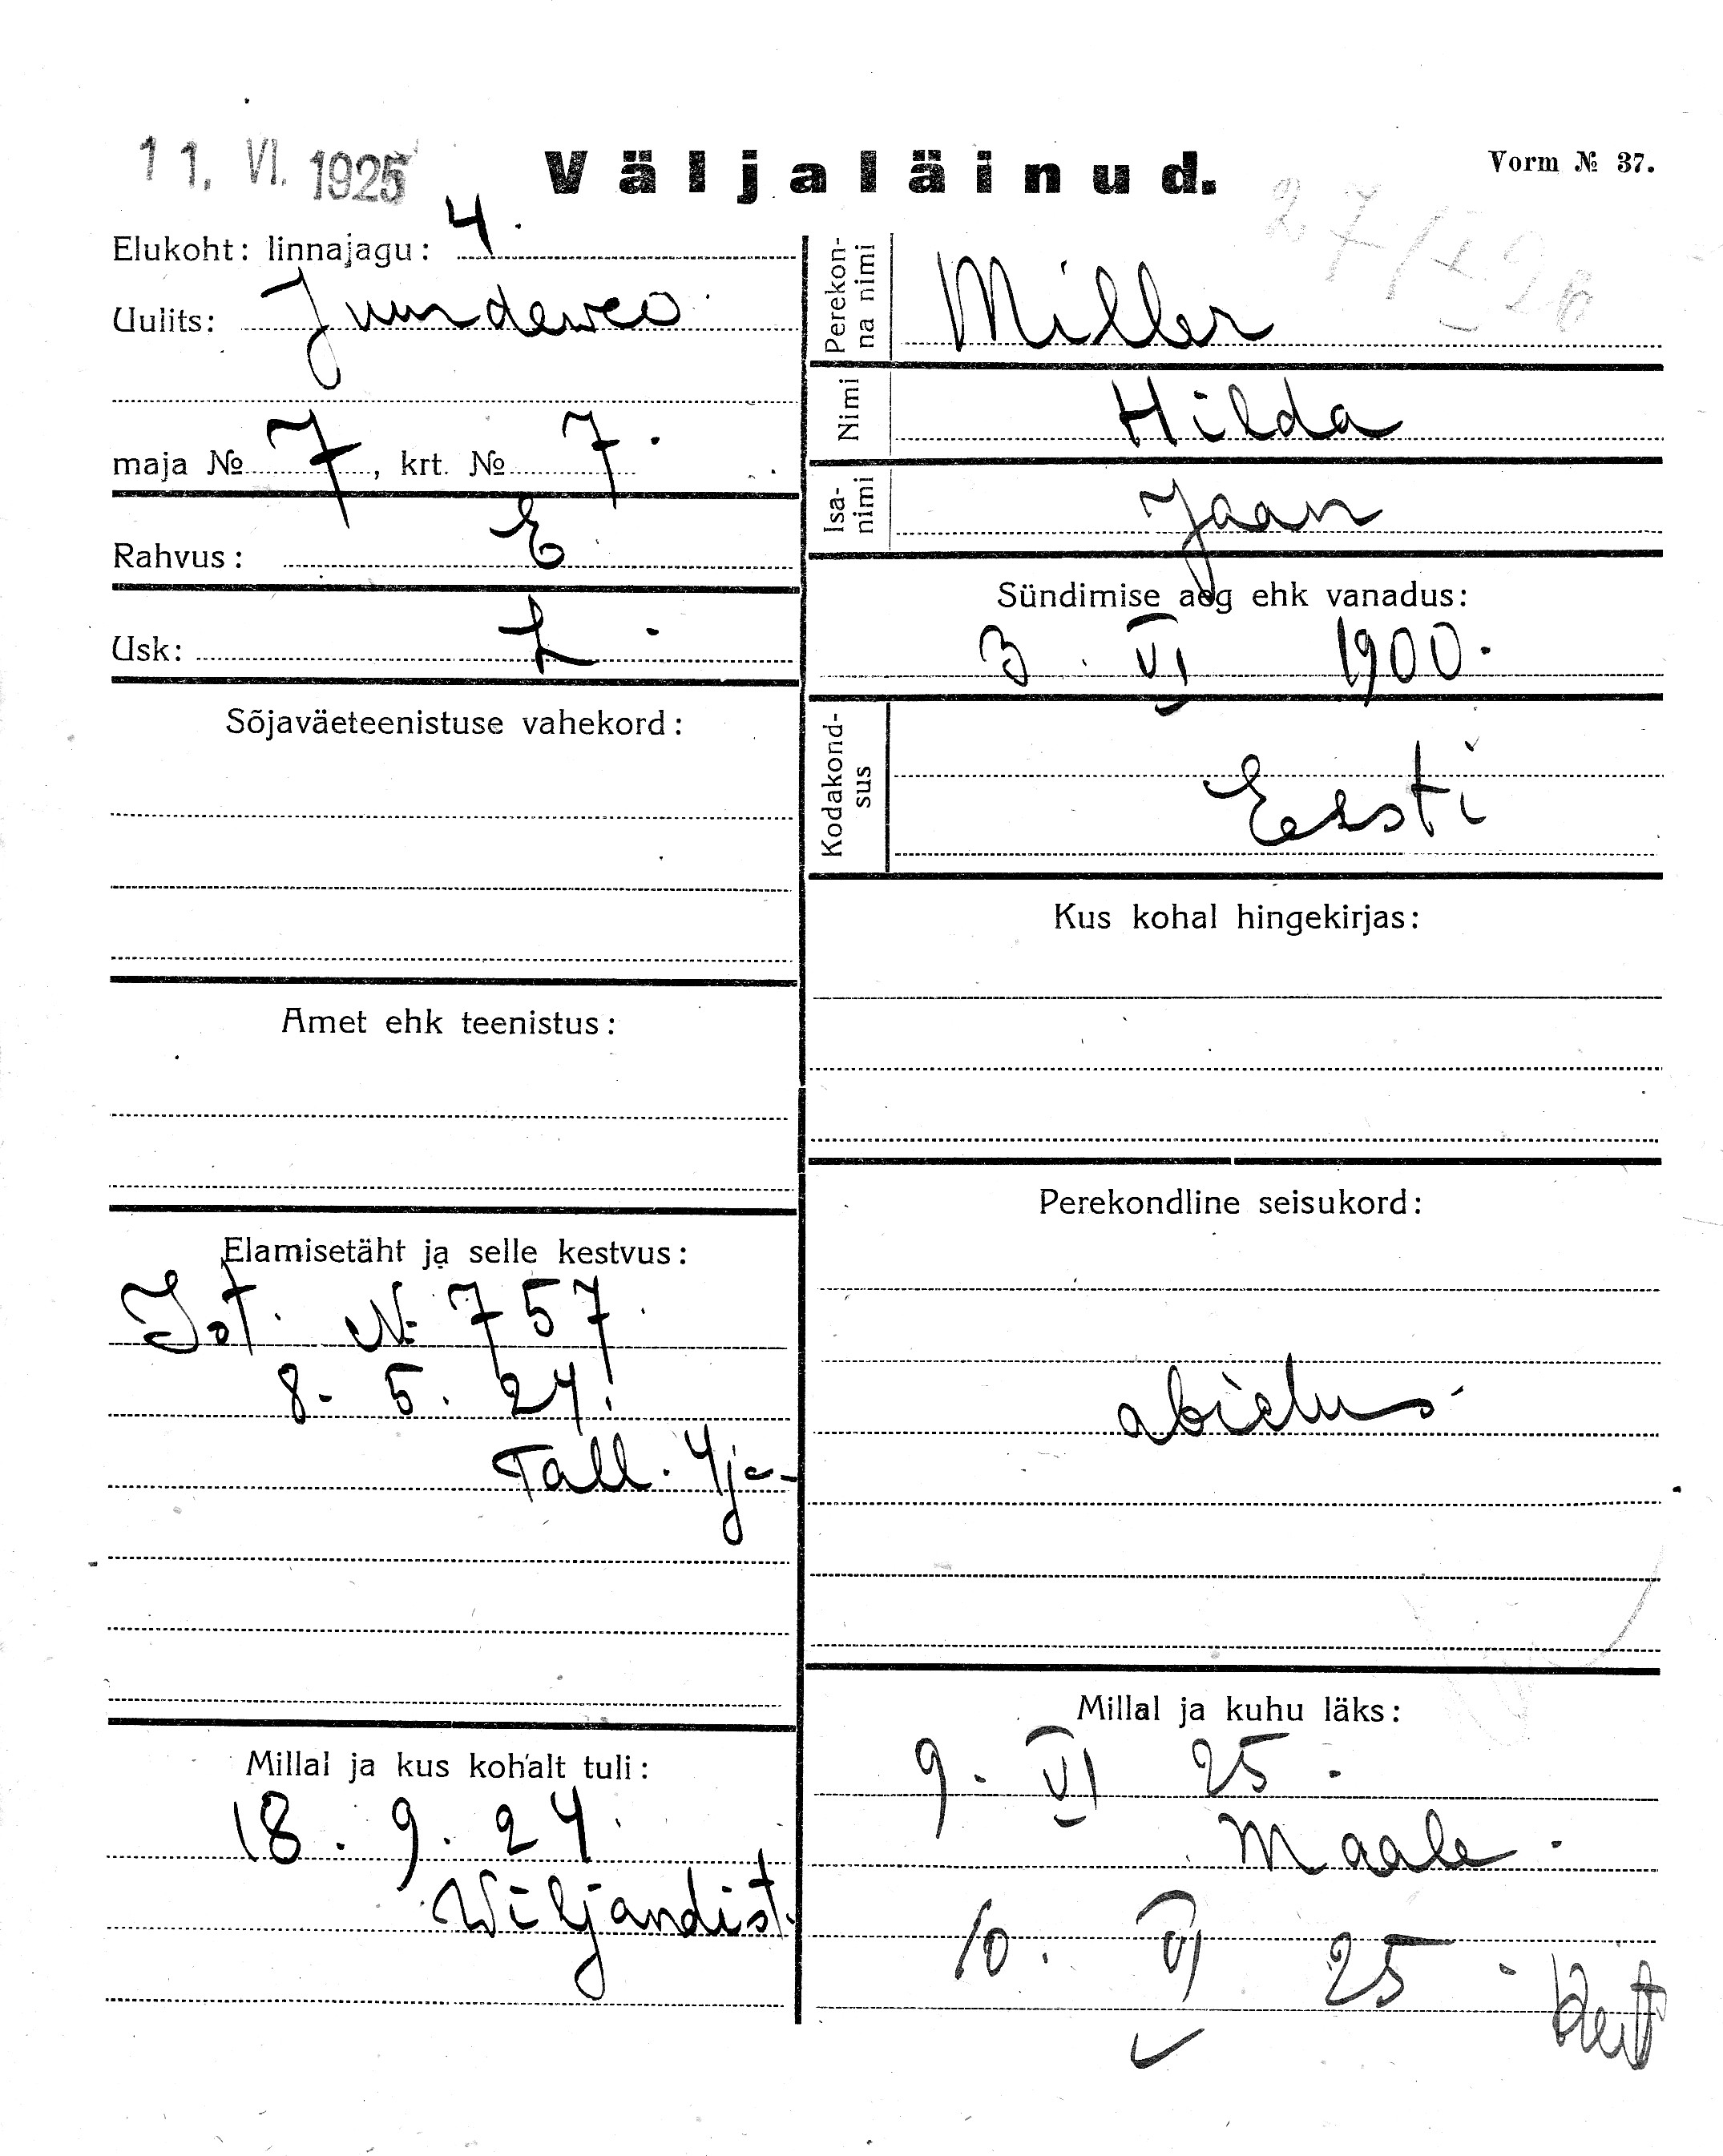 11. VI. 1925
Väljaläinud.
Vorm № 37.
27/I 26
Elukoht: linnajagu: 4.
Uulits: Juurdeweo
maja № 7, krt. № 7.
Rahvus: E
Usk: L.
Sõjaväeteenistuse vahekord:
Amet ehk teenistus:
Elamisetäht ja selle kestvus:
Ist. № 757.
8. 5. 24.
Tall. 4 j-
Millal ja kus kohalt tuli:
18. 9. 24.
Wiljandist.
Perekonna nimi
Miller
Nimi
Hilda
Isanimi
Jaan
Sündimise aeg ehk vanadus:
3. VI 1900.
Kodakondsus
Eesti
Kus kohal hingekirjas:
Perekondline seisukord:
abielus
Millal ja kuhu läks:
9. VI 25.
Maale.
10. VI 25.